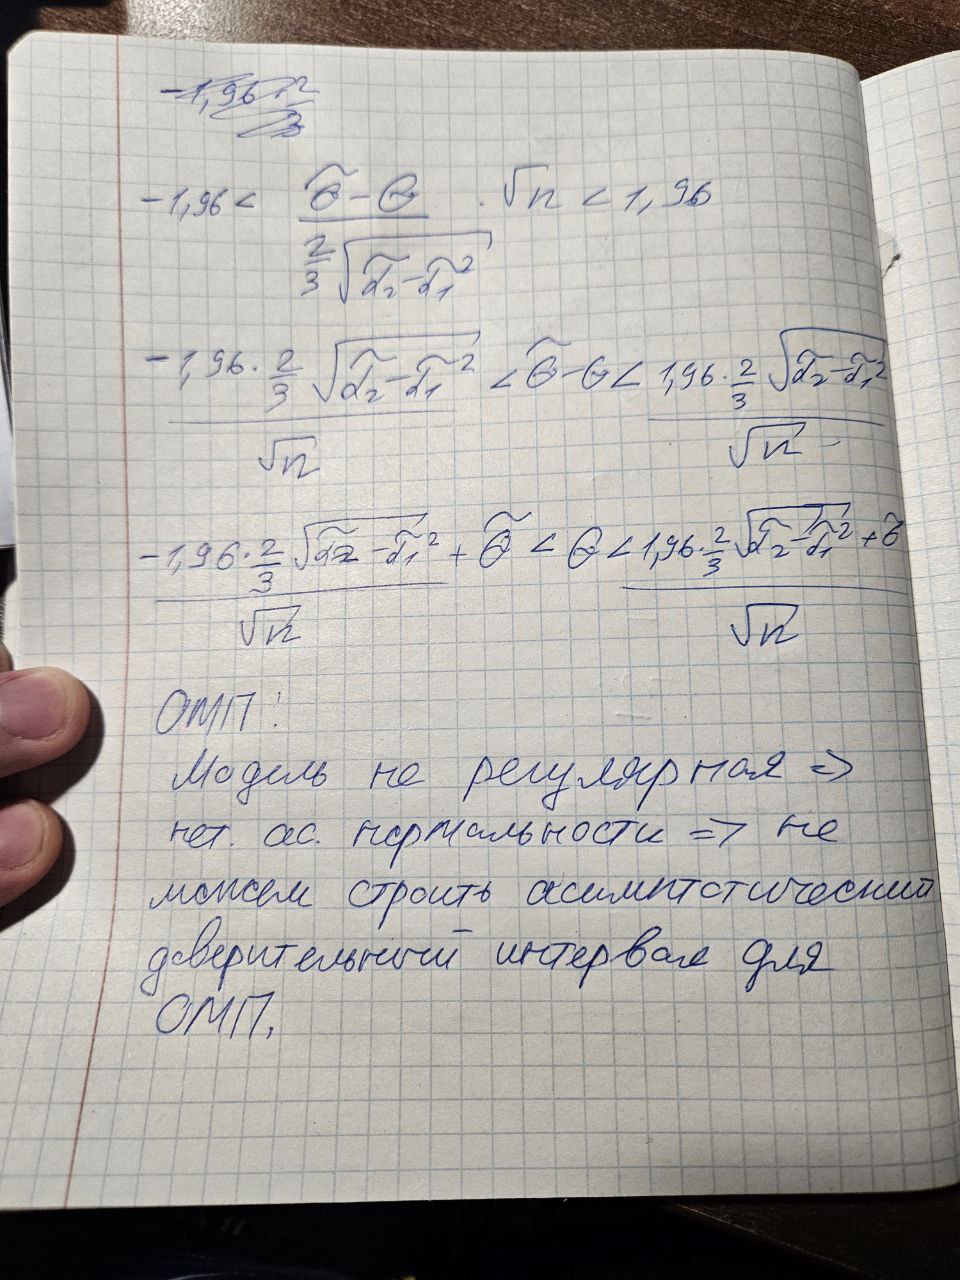 -1,96 < (θ̃ - θ) / (2/3 √(α̃₂ - α̃₁²)) · √n < 1,96
-1,96 · 2/3 √(α̃₂ - α̃₁²) / √n < θ̃ - θ < 1,96 · 2/3 √(α̃₂ - α̃₁²) / √n
-1,96 · 2/3 √(α̃₂ - α̃₁²) / √n + θ̃ < θ < 1,96 · 2/3 √(α̃₂ - α̃₁²) / √n + θ̃
ОМП:
Модель не регулярная =>
нет. ас. нормальности => не
можем строить асимптотический
доверительный интервал для
ОМП.